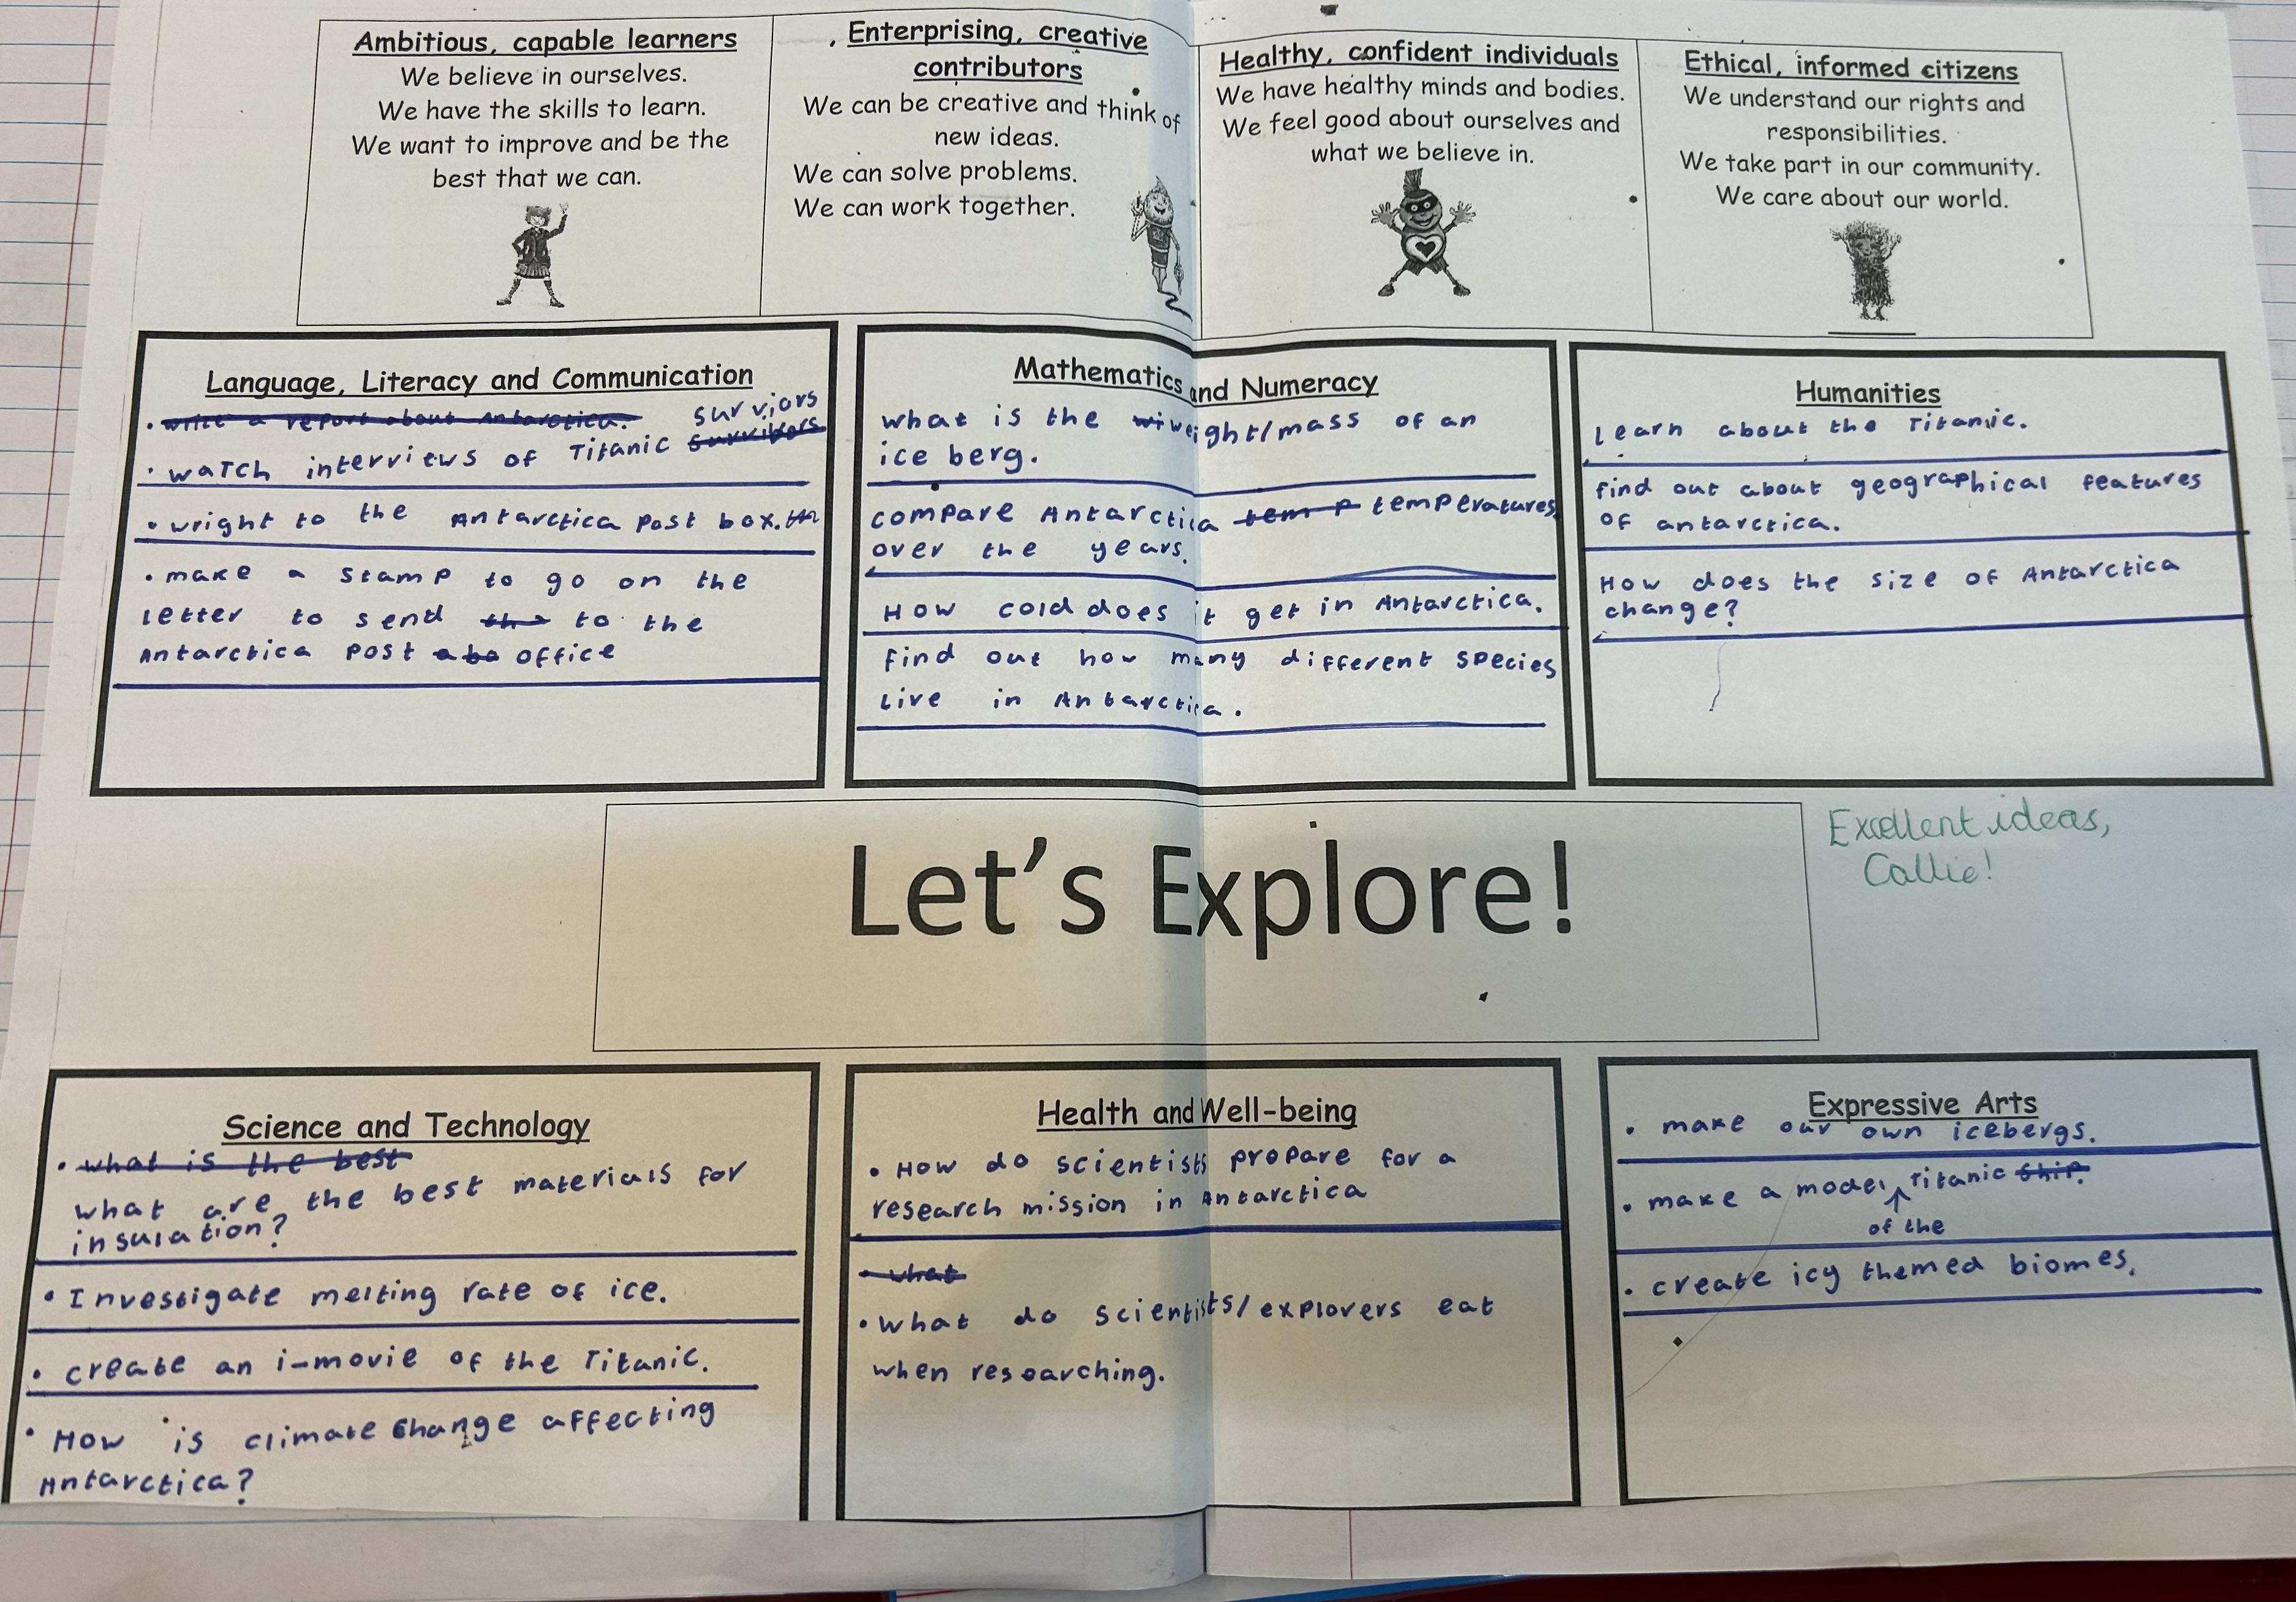 Ambitious, capable learners
We believe in ourselves.
We have the skills to learn.
We want to improve and be the
best that we can.
Enterprising, creative
contributors
We can be creative and think of
new ideas.
We can solve problems.
We can work together.
Healthy, confident individuals
We have healthy minds and bodies.
We feel good about ourselves and
what we believe in.
Ethical, informed citizens
We understand our rights and
responsibilities.
We take part in our community.
We care about our world.
Language, Literacy and Communication
• write a report about Antarctica.
• watch interviews of Titanic survivors surviors
• wright to the Antarctica post box.
• make a stamp to go on the
letter to send to the
Antarctica post office
Mathematics and Numeracy
what is the weight/mass of an
ice berg.
compare Antarctica temp temperatures
over the years.
How cold does it get in Antarctica.
Find out how many different species
live in Antarctica.
Humanities
learn about the Titanic.
find out about geographical features
of antarctica.
How does the size of Antarctica
change?
Let's Explore!
Excellent ideas,
Callie!
Science and Technology
• what is the best
what are the best materials for
insulation?
• Investigate melting rate of ice.
• create an i-movie of the Titanic.
• How is climate change affecting
Antarctica?
Health and Well-being
• How do scientists prepare for a
research mission in Antarctica
• what
• What do scientists/explorers eat
when researching.
Expressive Arts
• make our own icebergs.
• make a model of the Titanic ship.
• create icy themed biomes.